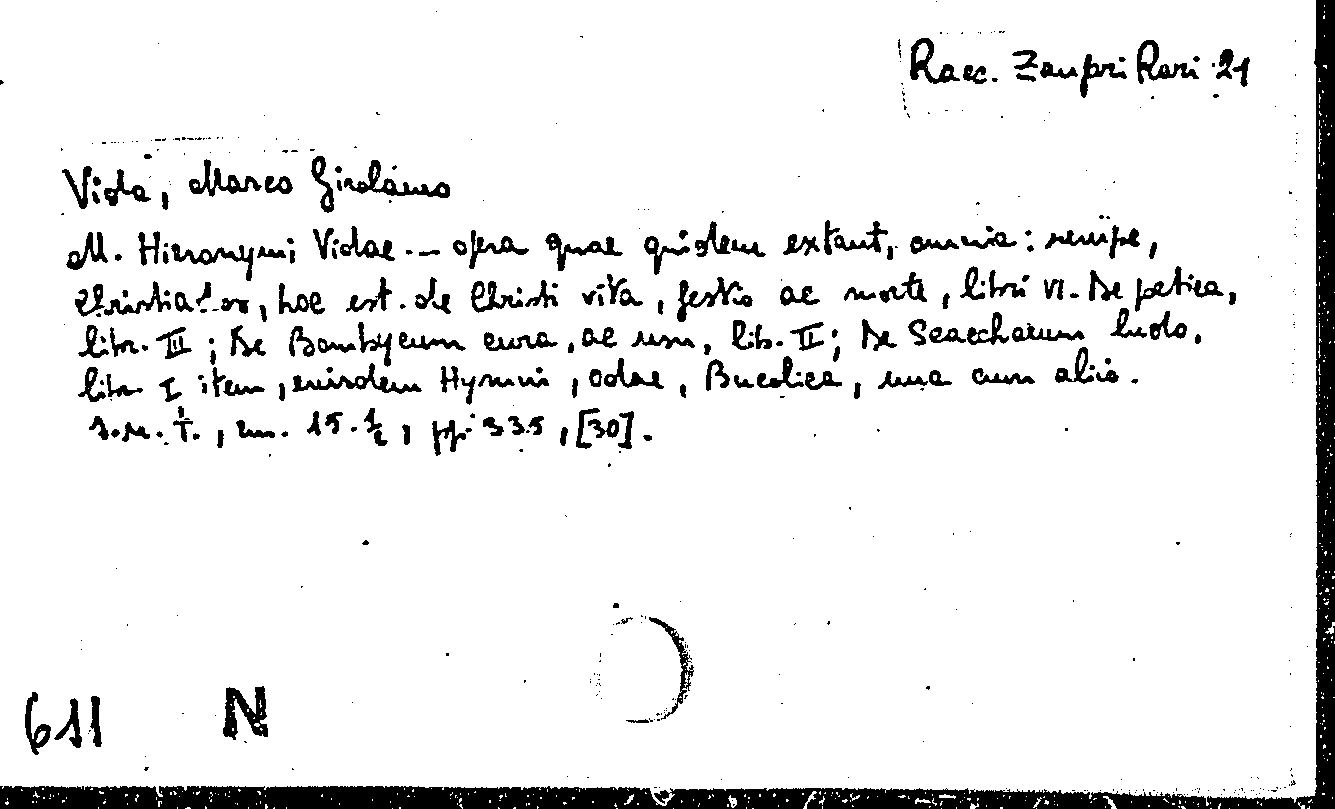 Racc. Zanpri Rari 21
Vida, Marco Girolamo
M. Hieronymi Vidae... opera quae quidem extant, omnia: nempe,
Christiados, hoc est. de Christi vita, gestis ac morte, libri VI. De poetica,
libr. III; De Bombycum cura, ac usu, lib. II; De Scacchorum ludo,
libr. I item, eiusdem Hymni, odae, Bucolica, una cum aliis.
s.n.t., cm. 15.½, pp. 335, [30].
611 N